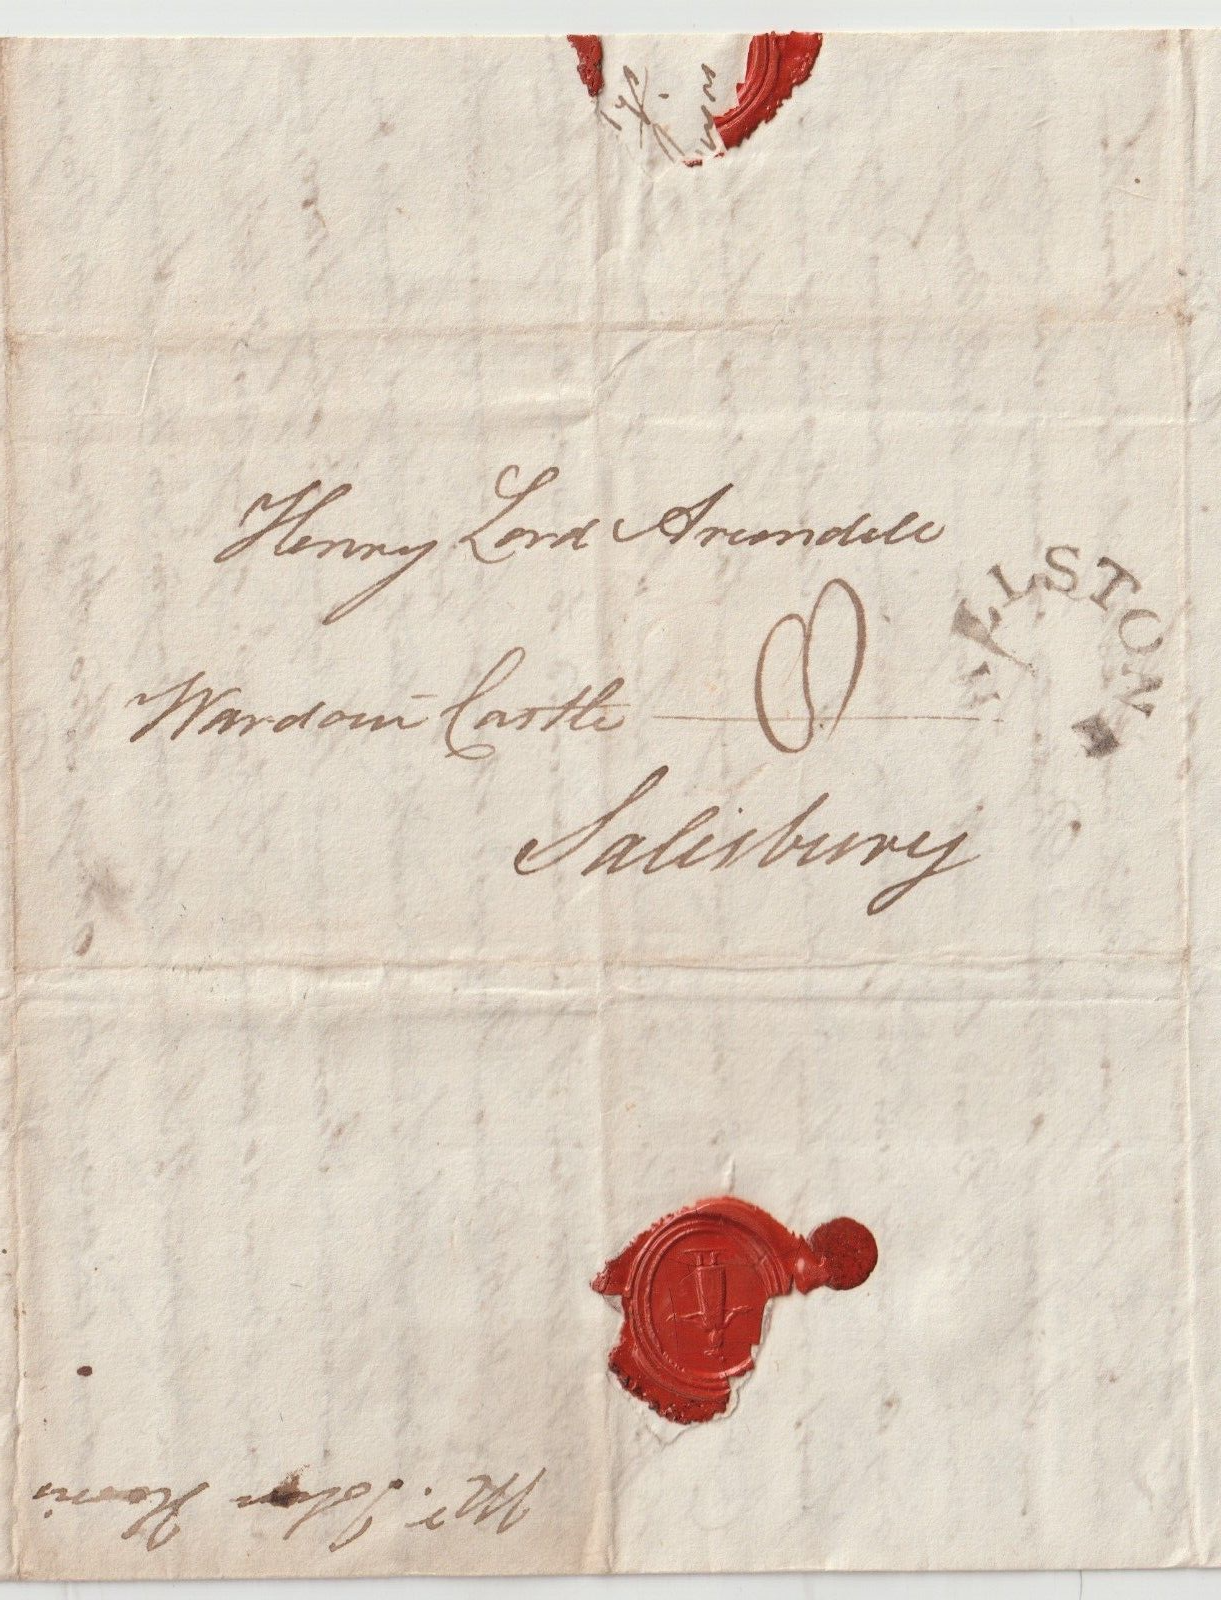 Henry Lord Arundell
8
Wardour Castle
Salisbury
LLSTON
Mr. John Harris